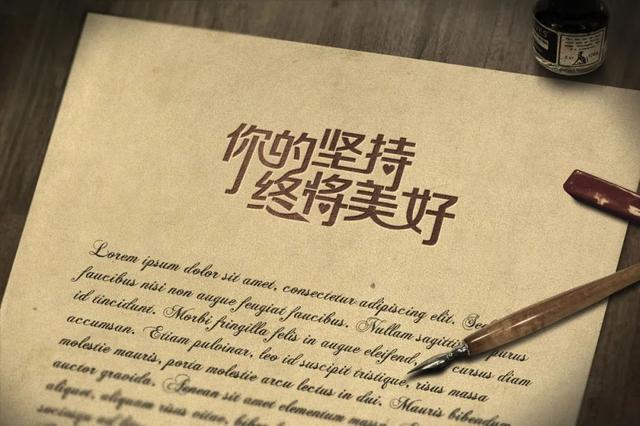 你的坚持
终将美好
Lorem ipsum dolor sit amet, consectetur adipiscing elit. Sed
faucibus nisi non augue feugiat faucibus. Nullam sagittis purus
id tincidunt. Morbi fringilla felis in augue eleifend, cursus diam
accumsan. Etiam pulvinar, leo id suscipit tristique, risus massa
molestie mauris, porta molestie arcu lectus in dui. Mauris bibendum
auctor gravida. Aenean sit amet elementum massa.
aliquet, aliquam risus vitae, bibendum